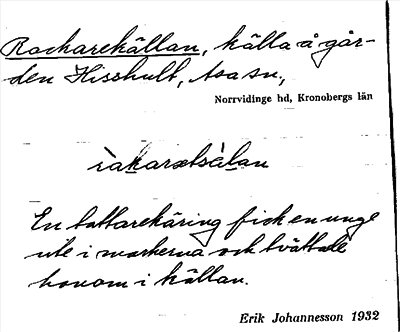 Rackarekällan, källa å går-
den Hisshult, Asa sn.,
Norrvidinge hd, Kronobergs län
En tattarekäring fick en unge
ute i markerna och tvättade
honom i källan.
Erik Johannesson 1932